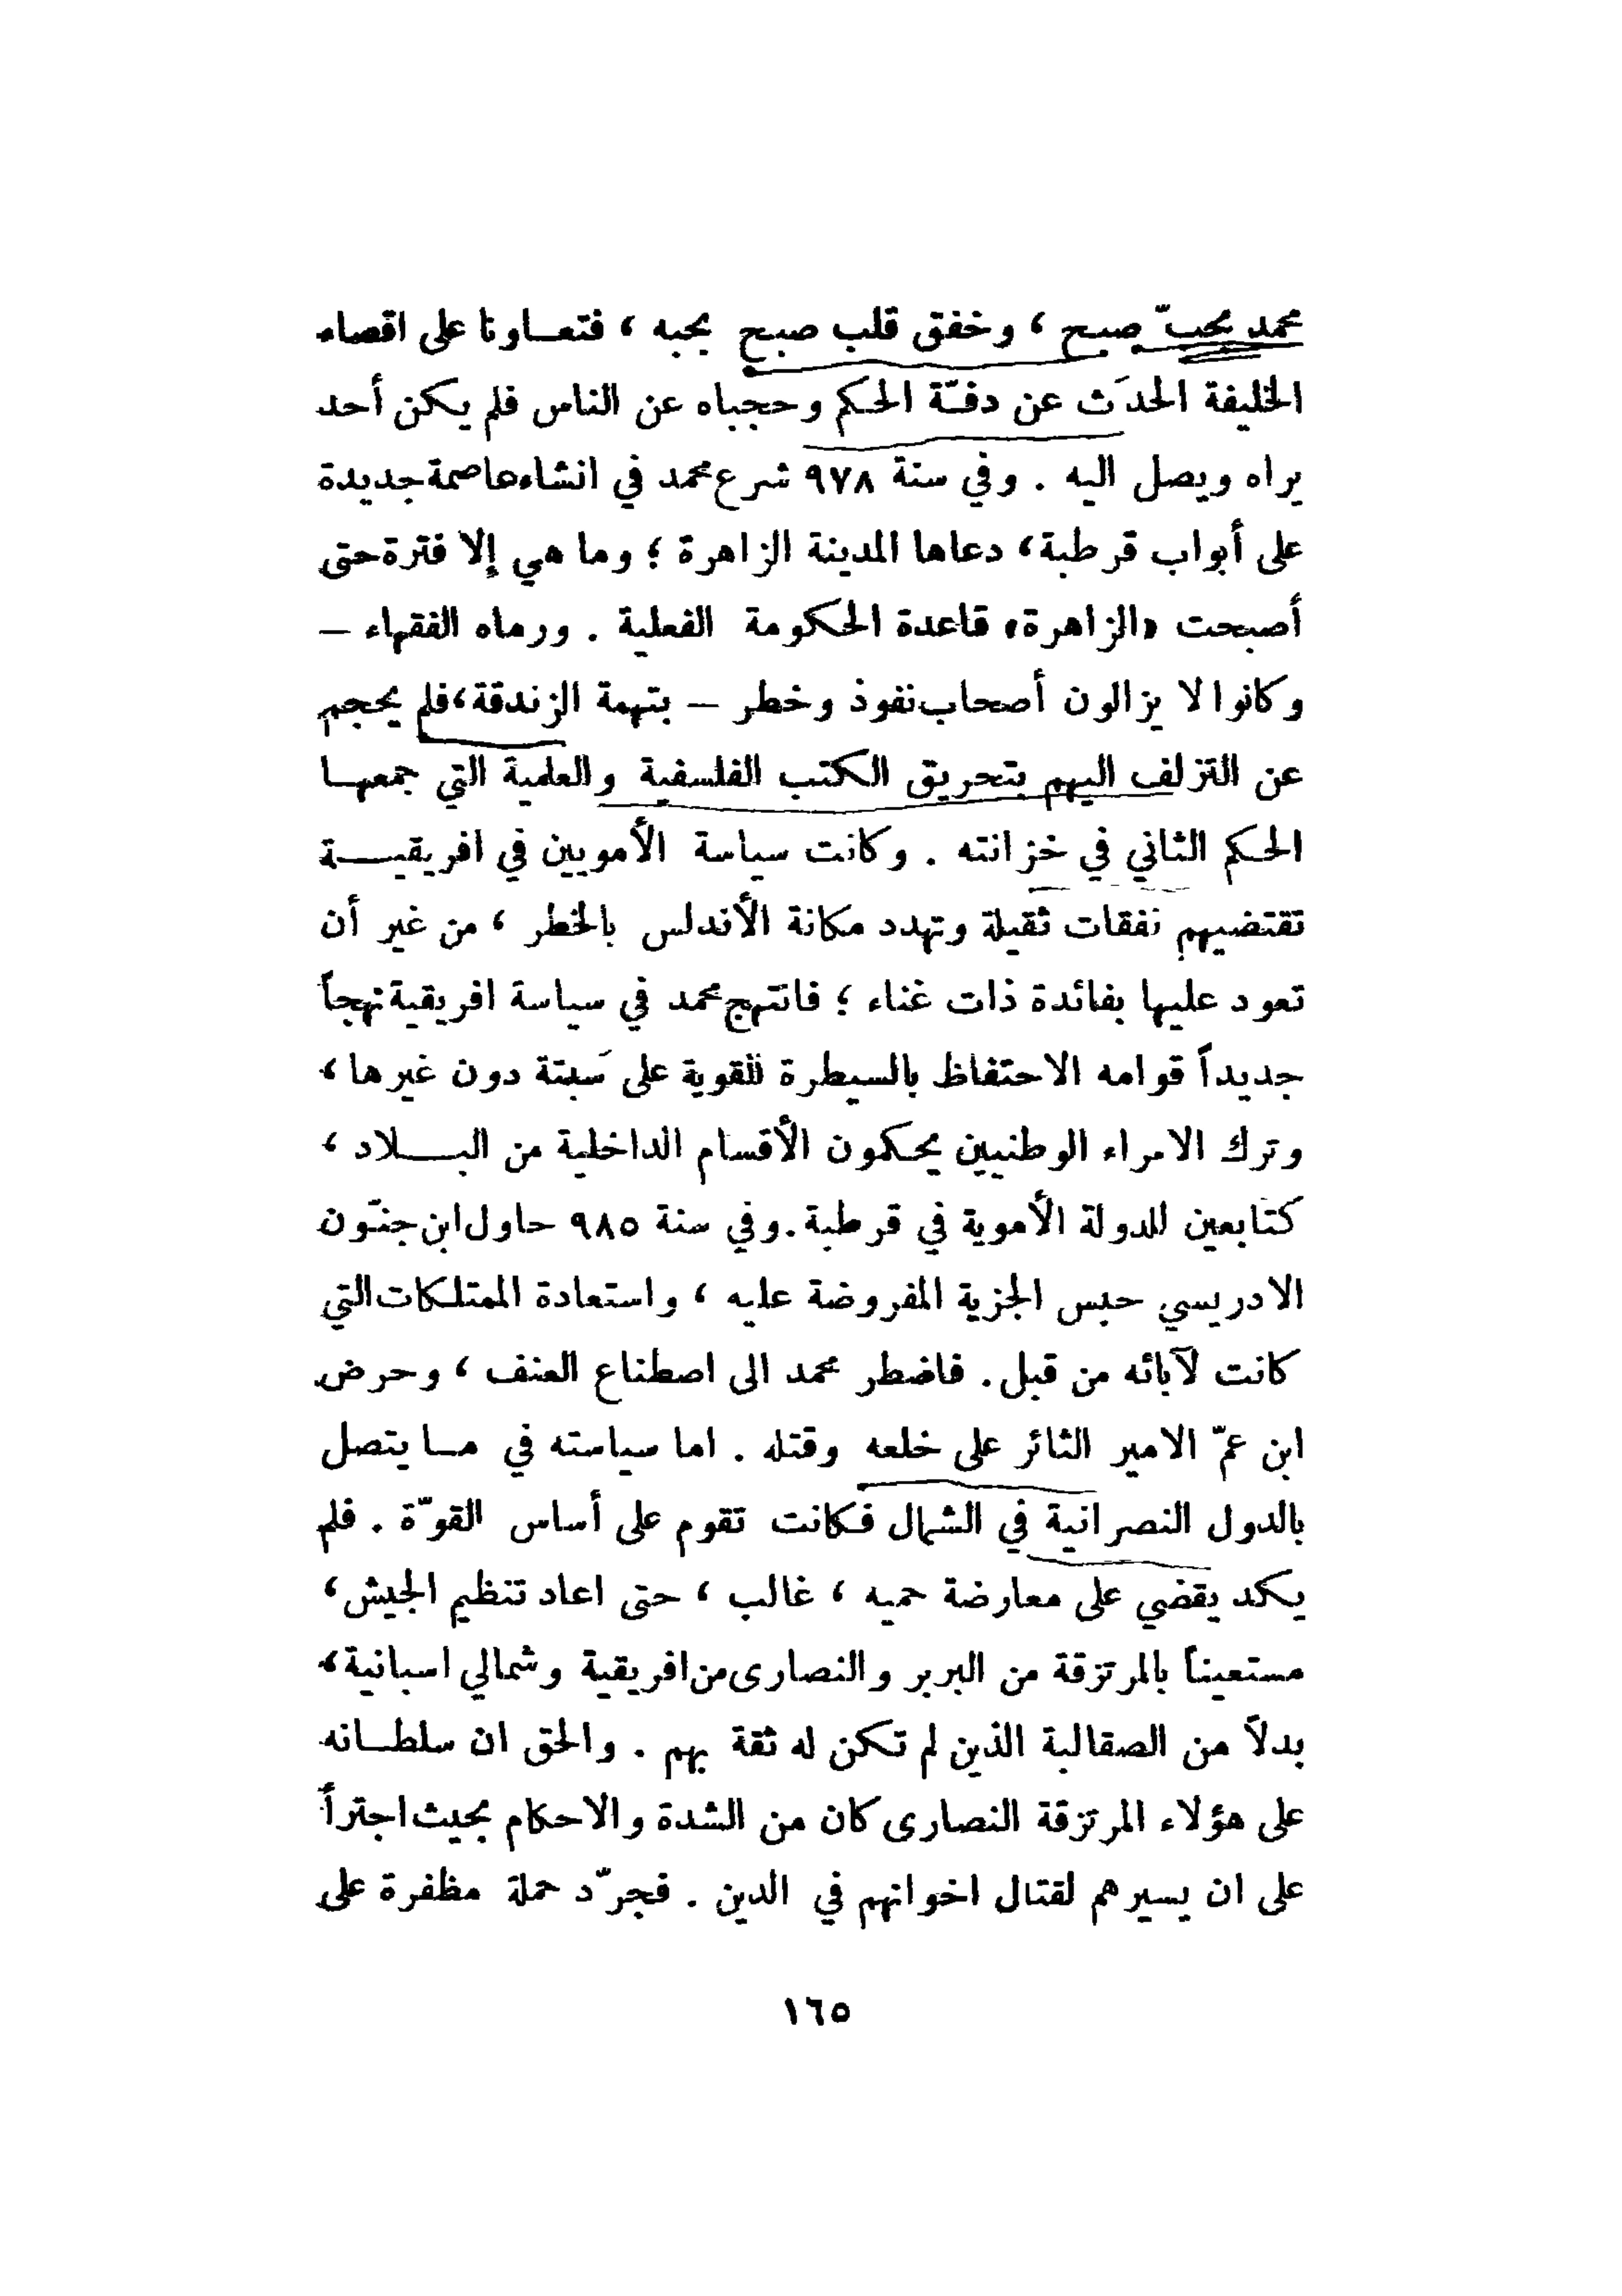 محمد بحبّ صبح ، وخفق قلب صبح بحبه ، فتعـاونا على اقصاء
الخليفة الحدَث عن دفّة الحكم وحجباه عن الناس فلم يكن أحد
يراه ويصل اليه . وفي سنة ٩٧٨ شرع محمد في انشاء عاصمة جديدة
على أبواب قرطبة، دعاها المدينة الزاهرة ؛ وما هي إلا فترة حتى
أصبحت «الزاهرة» قاعدة الحكومة الفعلية . ورماه الفقهاء –
وكانوا لا يزالون أصحاب نفوذ وخطر – بتهمة الزندقة، فلم يحجم
عن التزلف اليهم بتحريق الكتب الفلسفية والعلمية التي جمعهـا
الحكم الثاني في خزانته . وكانت سياسة الأمويين في افريقيـــة
تقتضيهم نفقات ثقيلة وتهدد مكانة الأندلس بالخطر ، من غير أن
تعود عليها بفائدة ذات غناء ؛ فانتهج محمد في سياسة افريقية نهجاً
جديداً قوامه الاحتفاظ بالسيطرة القوية على سَبتة دون غيرها ،
وترك الامراء الوطنيين يحكمون الأقسام الداخلية من البــــلاد ،
كتابعين للدولة الأموية في قرطبة. وفي سنة ٩٨٥ حاول ابن جنّون
الادريسي حبس الجزية المفروضة عليه ، واستعادة الممتلكات التي
كانت لآبائه من قبل . فاضطر محمد الى اصطناع العنف ، وحرض
ابن عمّ الامير الثائر على خلعه وقتله . اما سياسته في مـا يتصل
بالدول النصرانية في الشمال فكانت تقوم على أساس القوّة . فلم
يكد يقضي على معارضة حميه ، غالب ، حتى اعاد تنظيم الجيش ،
مستعيناً بالمرتزقة من البربر والنصارى من افريقية وشمالي اسبانية،
بدلاً من الصقالبة الذين لم تكن له ثقة بهم . والحق ان سلطـانه
على هؤلاء المرتزقة النصارى كان من الشدة والاحكام بحيث اجترأ
على ان يسيرهم لقتال اخوانهم في الدين . فجرّد حملة مظفرة على
١٦٥